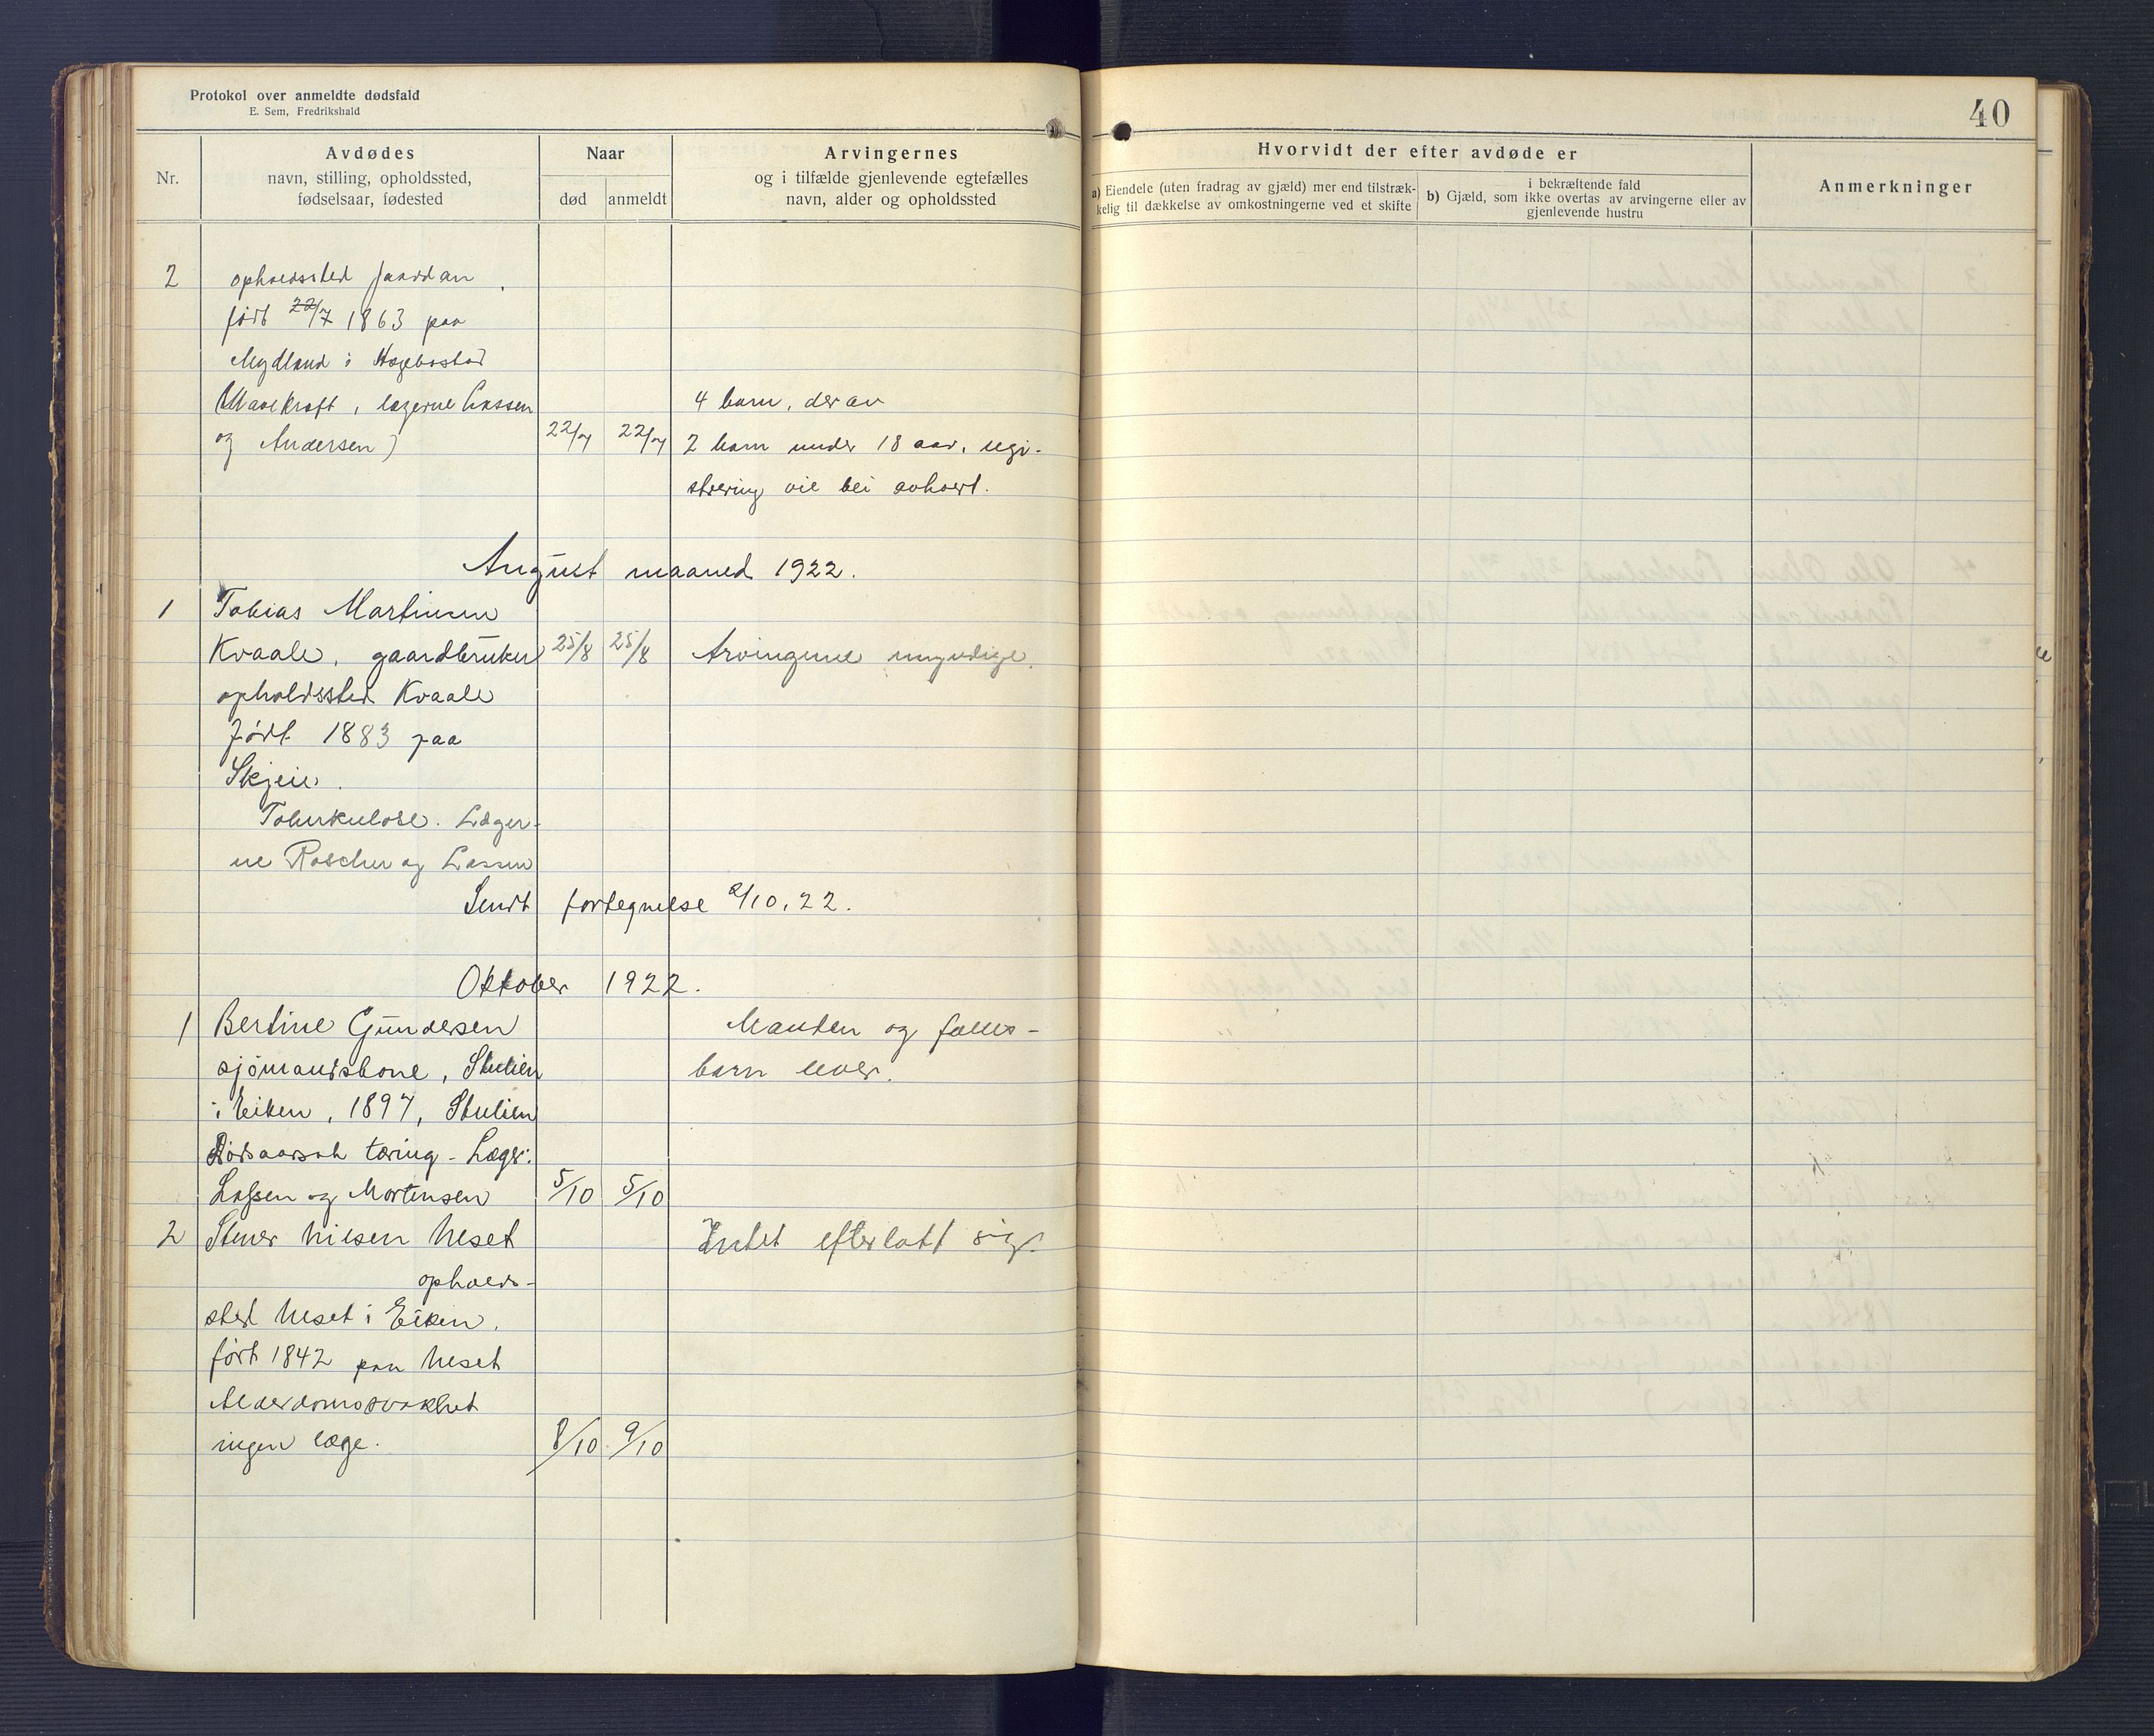 Protokol over anmeldte dødsfald
E. Sem, Fredrikshald
40
Nr.
Avdødes
navn, stilling, opholdssted,
fødselsaar, fødested
Naar
død
anmeldt
Arvingernes
og i tilfælde gjenlevende egtefælles
navn, alder og opholdssted
Hvorvidt der efter avdøde er
a) Eiendele (uten fradrag av gjæld) mer end tilstræk-
kelig til dækkelse av omkostningerne ved et skifte
i bekræftende fald
b) Gjæld, som ikke overtas av arvingerne eller av
gjenlevende hustru
Anmerkninger
2 opholdssted
født 22/7 1863 paa
Mydland i Hægebostad
(Mavekræft, lægerne Lassen 4 barn, derav
og Andersen) 22/7 22/7 2 barn under 18 aar, regi-
strering vil bli avholdt.
August maaned 1922.
1 Tobias Martinsen
Kvaale, gaardbruker 25/8 25/8 Arvingerne umyndige.
opholdssted Kvaale
født 1883 paa
Skjeie.
Tuberkulose. Læger-
ne Roscher og Lassen
Sendt fortegnelse 2/10.22.
Oktober 1922.
1 Bertine Gundersen Manden og fælles-
sjømandskone, Stulien barn lever.
i Eiken, 1897, Stulien
Dødsaarsak tæring - Læger:
Lassen og Mortensen 5/10 5/10
2 Stener Nilsen Neset Intet efterlatt sig.
opholds-
sted Neset i Eiken.
født 1842 paa Neset
Alderdomssvakhet
ingen læge. 8/10 9/10